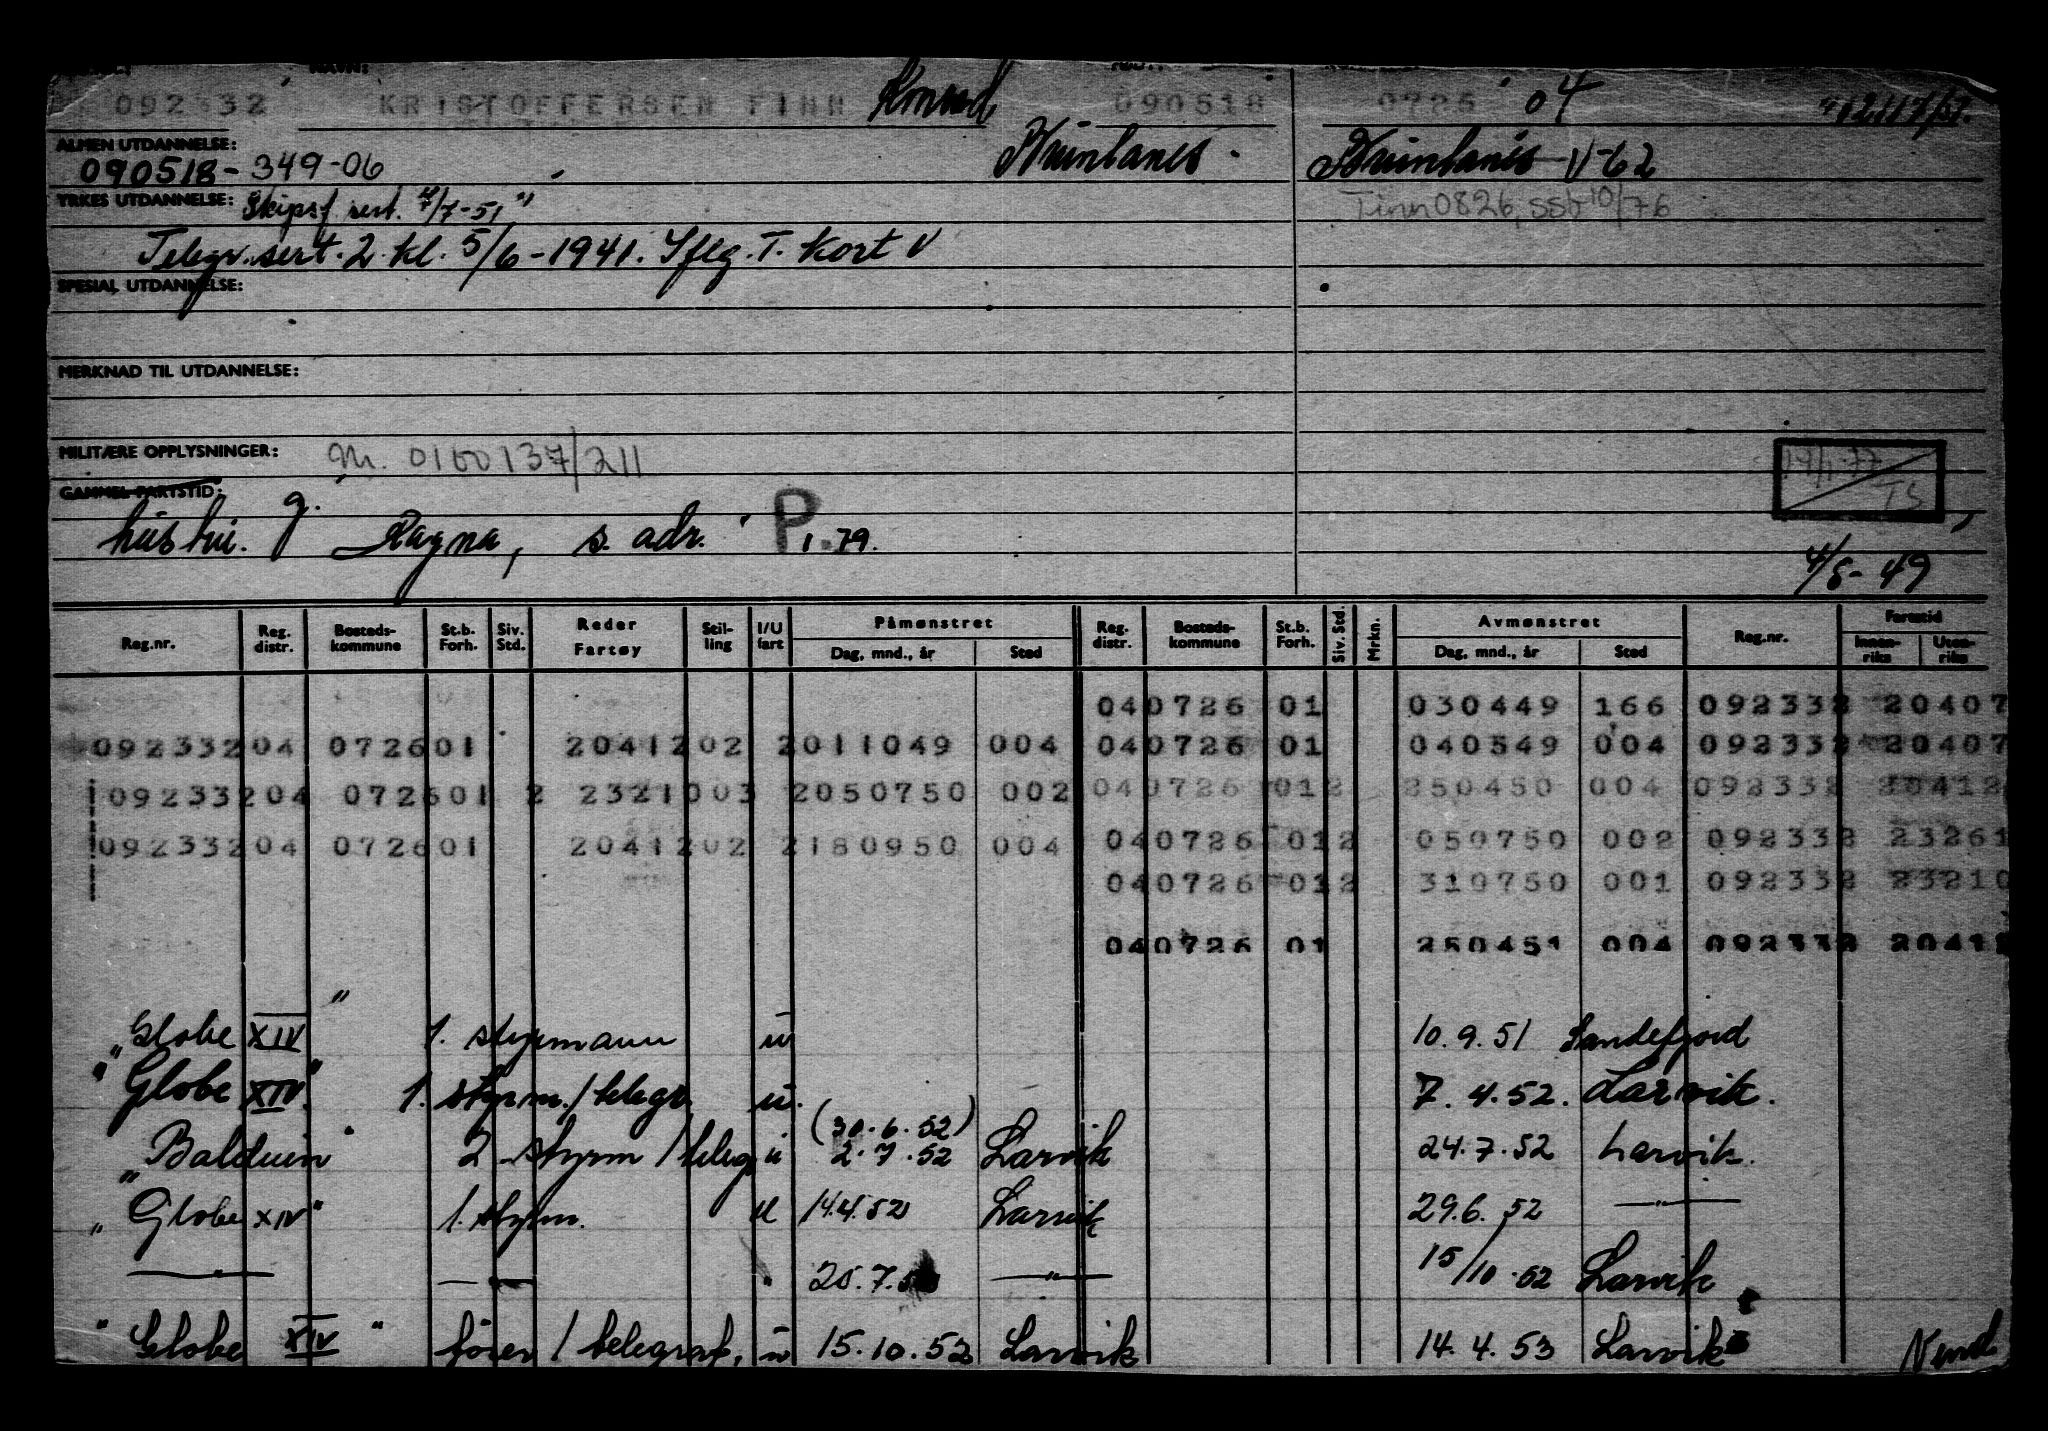 NAVN:
092332 KRISTOFFERSEN FINN Konrad 090518 0726 04
ALMEN UTDANNELSE: Brunlanes. Brunlanes V-62
090518-349-06
YRKES UTDANNELSE: Skipsf. sert. 4/7-51 Tinn 0826, sst 10/76
Telegr. sert. 2. kl. 5/6-1941. Iflg. T. Kort V
SPESIAL UTDANNELSE:
MERKNAD TIL UTDANNELSE:
MILITÆRE OPPLYSNINGER: Nr. 0160137/211
GAMMEL FARTSTID: TS
hustru. g. Ragna, s. adr. P 1.79.
4/8-49
Reg.nr. Reg. distr. Bosteds-kommune St.b. Forh. Siv. Std. Reder Fartøy Stil-ling I/U fart Påmønstret Dag, mnd., år Sted Reg. distr. Bosteds-kommune St.b. Forh. Siv. Std. Mrkn. Avmønstret Dag, mnd., år Sted Reg.nr. Fartstid Innen-riks Uten-riks
040726 01 030449 166 092332 20407
092332 04 072601 2041202 2011049 004 040726 01 040549 004 092332 20407
092332 04 072601 2 2321003 2050750 002 040726 012 250450 004 092332 20412
092332 04 072601 2041202 2180950 004 040726 012 050750 002 092332 23261
040726 012 310750 001 092332 23210
040726 01 250451 004 092332 20412
"Globe XIV" 1. styrmann u 10.9.51 Sandefjord
"Globe XIV" 1. styrm./telegr. u. 7.4.52. Larvik.
(30.6.52)
"Balduin" 2. styrm/teleg u 2.7.52 Larvik 24.7.52 Larvik.
"Globe XIV" 1. styrm. u 14.4.52 Larvik 29.6.52 —"—
—"— — — " 25.7.52 —"— 15/10.52 Larvik
"Globe XIV" fører/telegraf. u 15.10.52 Larvik 14.4.53 Larvik
Vend